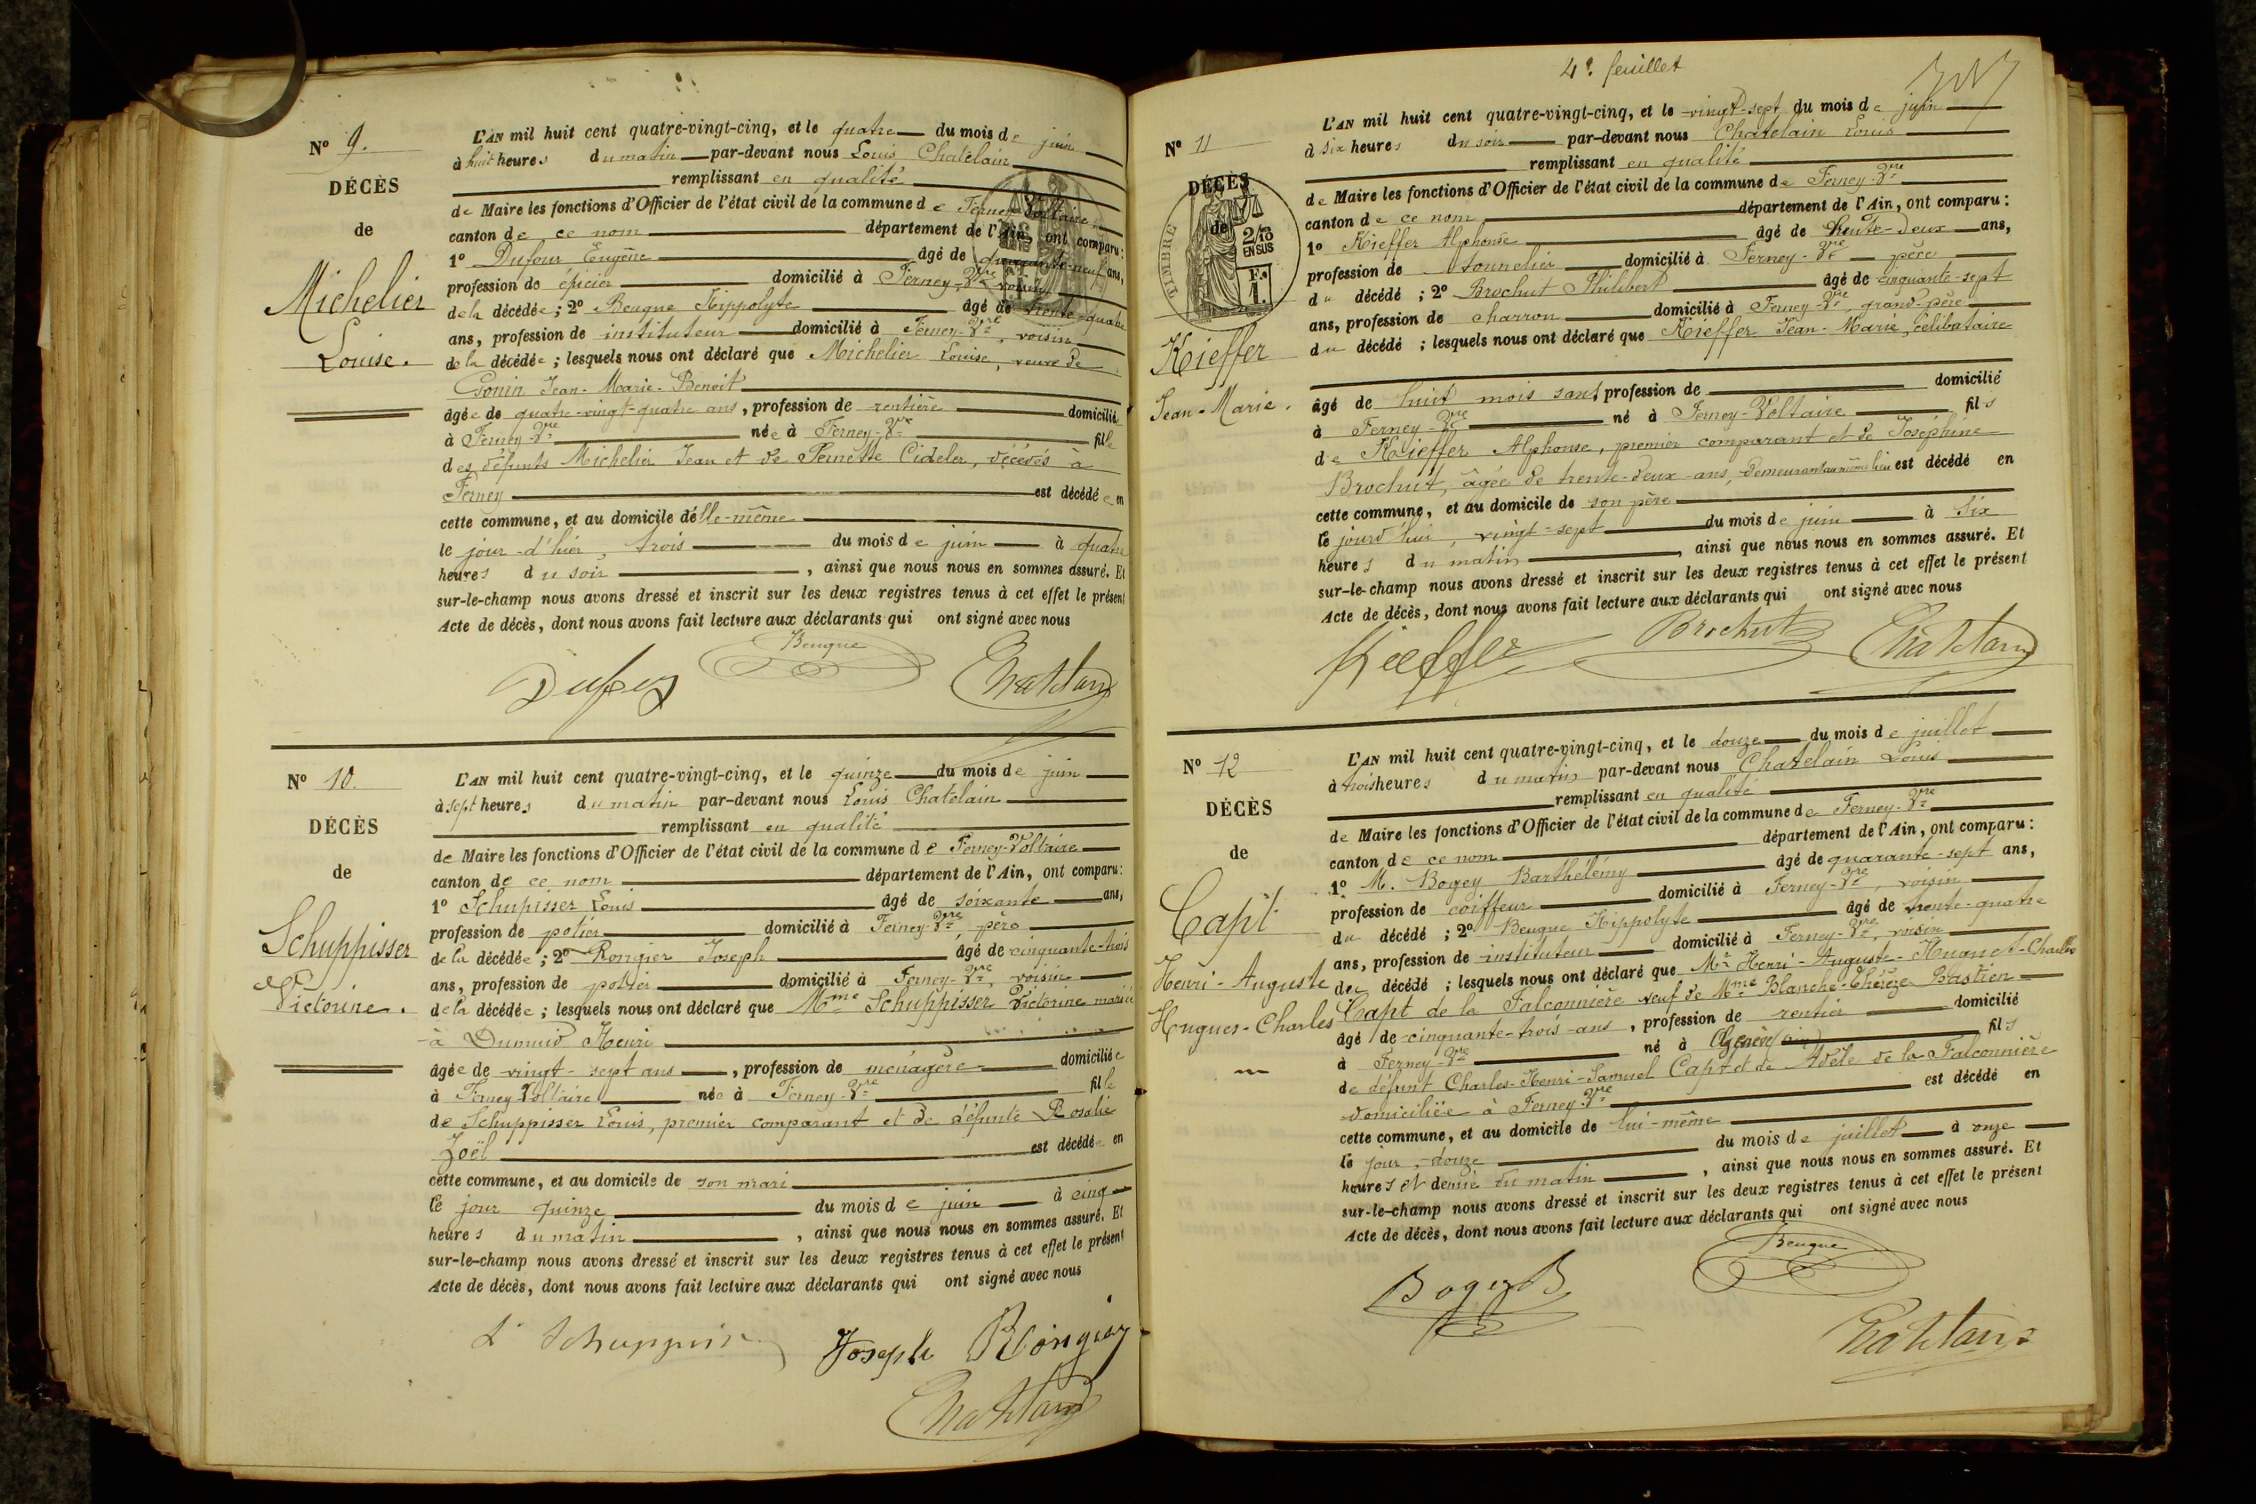 Nº 9.
DÉCÈS
de
Michelier
Louise.
L'AN mil huit cent quatre-vingt-cinq, et le quatre du mois de juin
à huit heures du matin par-devant nous Louis Chatelain
remplissant en qualité
de Maire les fonctions d'Officier de l'état civil de la commune de Ferney-Voltaire
canton de ce nom département de l'Ain, ont comparu:
1º Dufour Eugène âgé de quarante-neuf ans,
profession de épicier domicilié à Ferney-Vre voisin
de la décédée; 2º Beugne Hippolyte âgé de trente-quatre
ans, profession de instituteur domicilié à Ferney-Vre, voisin
de la décédée; lesquels nous ont déclaré que Michelier Louise, veuve de
Gonin Jean-Marie-Benoit
âgée de quatre-vingt-quatre ans, profession de rentière domiciliée
à Ferney-Vre née à Ferney-Vre fille
des défunts Michelier Jean et de Pernette Cideler, décédés à
Ferney est décédée en
cette commune, et au domicile d'elle-même
le jour-d'hier, trois du mois de juin à quatre
heures du soir, ainsi que nous nous en sommes assuré. Et
sur-le-champ nous avons dressé et inscrit sur les deux registres tenus à cet effet le présent
Acte de décès, dont nous avons fait lecture aux déclarants qui ont signé avec nous
Beugne
Dufour
Chatelain
Nº 10.
DÉCÈS
de
Schuppisser
Victorine.
L'AN mil huit cent quatre-vingt-cinq, et le quinze du mois de juin
à sept heures du matin par-devant nous Louis Chatelain
remplissant en qualité
de Maire les fonctions d'Officier de l'état civil de la commune de Ferney-Voltaire
canton de ce nom département de l'Ain, ont comparu:
1º Schupisser Louis âgé de soixante ans,
profession de potier domicilié à Ferney-Vre, père
de la décédée; 2º Rongier Joseph âgé de cinquante-trois
ans, profession de potier domicilié à Ferney-Vre, voisin
de la décédée; lesquels nous ont déclaré que Mme Schuppisser Victorine mariée
à Dumuid Henri
âgée de vingt-sept ans, profession de ménagère domiciliée
à Ferney Voltaire née à Ferney-Vre fille
de Schuppisser Louis, premier comparant et de défunte Rosalie
Joël est décédée en
cette commune, et au domicile de son mari
le jour quinze du mois de juin à cinq
heures du matin, ainsi que nous nous en sommes assuré. Et
sur-le-champ nous avons dressé et inscrit sur les deux registres tenus à cet effet le présent
Acte de décès, dont nous avons fait lecture aux déclarants qui ont signé avec nous
Joseph Rongier
Chatelain
4e feuillet
Nº 11
DÉCÈS
de
TIMBRE
2/10
EN SUS
Kieffer
Jean-Marie.
L'AN mil huit cent quatre-vingt-cinq, et le vingt-sept du mois de juin
à six heures du soir par-devant nous Chatelain Louis
remplissant en qualité
de Maire les fonctions d'Officier de l'état civil de la commune de Ferney-Vre
canton de ce nom département de l'Ain, ont comparu:
1º Kieffer Alphonse âgé de trente-deux ans,
profession de tonnelier domicilié à Ferney-Vre père
du décédé; 2º Brochut Philibert âgé de cinquante-sept
ans, profession de charron domicilié à Ferney-Vre, grand-père
du décédé; lesquels nous ont déclaré que Kieffer Jean-Marie, célibataire
âgé de huit mois sans profession de domicilié
à Ferney-Vre né à Ferney-Voltaire fils
de Kieffer Alphonse, premier comparant et de Joséphine
Brochut, âgée de trente-deux-ans, demeurant au même lieu est décédé en
cette commune, et au domicile de son père
le jourd'hui, vingt-sept du mois de juin à six
heures du matin, ainsi que nous nous en sommes assuré. Et
sur-le-champ nous avons dressé et inscrit sur les deux registres tenus à cet effet le présent
Acte de décès, dont nous avons fait lecture aux déclarants qui ont signé avec nous
Kieffer Brochut Chatelain
Nº 12
DÉCÈS
de
Capt
Henri-Auguste
Hugues-Charles
L'AN mil huit cent quatre-vingt-cinq, et le douze du mois de juillet
à trois heures du matin par-devant nous Chatelain Louis
remplissant en qualité
de Maire les fonctions d'Officier de l'état civil de la commune de Ferney-Vre
canton de ce nom département de l'Ain, ont comparu:
1º M. Bogey Barthélémy âgé de quarante-sept ans,
profession de coiffeur domicilié à Ferney-Vre, voisin
du décédé; 2º Beugne Hippolyte âgé de trente-quatre
ans, profession de instituteur domicilié à Ferney-Vre, voisin
du décédé; lesquels nous ont déclaré que Mr Henri-Auguste-Huguet-Charles
Capt de la Falconnière veuf de Mme Blanche-Thérèze Bastien
âgé de cinquante-trois-ans, profession de rentier domicilié
à Ferney-Vre né à Genève fils
de défunt Charles-Henri-Samuel Capt et de Adèle de la Falconnière
domiciliée à Ferney-Vre est décédé en
cette commune, et au domicile de lui-même
le jour, douze du mois de juillet à onze
heures et demie du matin, ainsi que nous nous en sommes assuré. Et
sur-le-champ nous avons dressé et inscrit sur les deux registres tenus à cet effet le présent
Acte de décès, dont nous avons fait lecture aux déclarants qui ont signé avec nous
Beugne
Bogey B
Chatelain